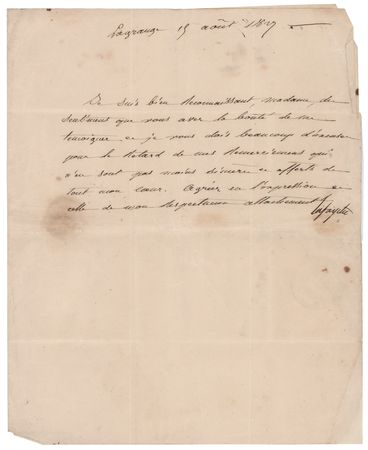 Lagrange 15 août 1827
Je suis bien reconnaissant, madame, du
sentiment que vous avez la bonté de me
temoigner et je vous dois beaucoup d'excuses
pour le retard de mes remerciemens qui
n'en sont pas moins sincères et offerts de
tout mon coeur. Agréez en l'expression et
celle de mon respectueux attachement
Lafayette